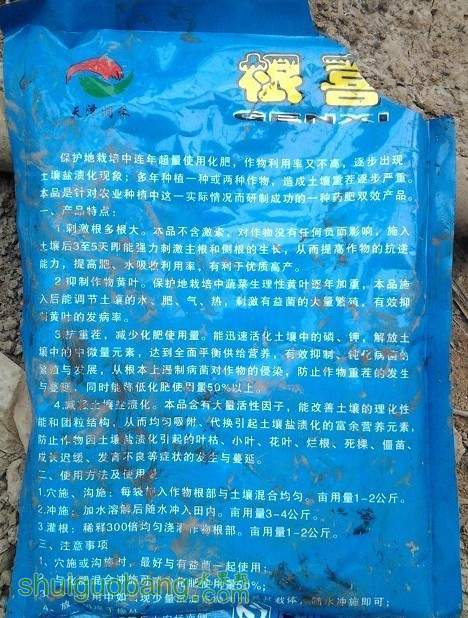 根喜
GENXI
天泽润禾
保护地栽培中连年超量使用化肥，作物利用率又不高，逐步出现
土壤盐渍化现象；多年种植一种或两种作物，造成土壤重茬逐步严重。
本品是针对农业种植中这一实际情况而研制成功的一种药肥双效产品。
一、产品特点：
1.刺激根多根大。本品不含激素，对作物没有任何负面影响，施入
土壤后3至5天即能强力刺激主根和侧根的生长，从而提高作物的抗逆
能力，提高肥、水吸收利用率，有利于优质高产。
2.抑制作物黄叶。保护地栽培中蔬菜生理性黄叶逐年加重，本品施
入后能调节土壤的水、肥、气、热，刺激有益菌的大量繁殖，有效抑
制黄叶的发病率。
3.抗重茬，减少化肥使用量。能迅速活化土壤中的磷、钾，解放土
壤中的中微量元素，达到全面平衡供给营养，有效抑制、钝化病菌的
繁殖与发展，从根本上遏制病菌对作物的侵染，防止作物重茬的发生
与蔓延，同时能降低化肥使用量50%以上。
4.减轻土壤盐渍化。本品含有大量活性因子，能改善土壤的理化性
能和团粒结构，从而均匀吸附、代换引起土壤盐渍化的富余营养元素，
防止作物因土壤盐渍化引起的叶枯、小叶、花叶、烂根、死棵、僵苗、
成长迟缓、发育不良等症状的发生与蔓延。
二、使用方法及使用
1.穴施、沟施：每袋拌入作物根部与土壤混合均匀。亩用量1-2公斤。
2.冲施：加水溶解后随水冲入田内。亩用量3-4公斤。
3灌根：稀释300倍均匀浇灌作物根部。亩用量1-2公斤。
三、注意事项
1、穴施或沟施时，最好与有益菌一起使用；
化肥混合冲施可减少化肥使用量50%；
使用中如出现少量 载体，随水冲施即可；
4、放
shuiguobang.com